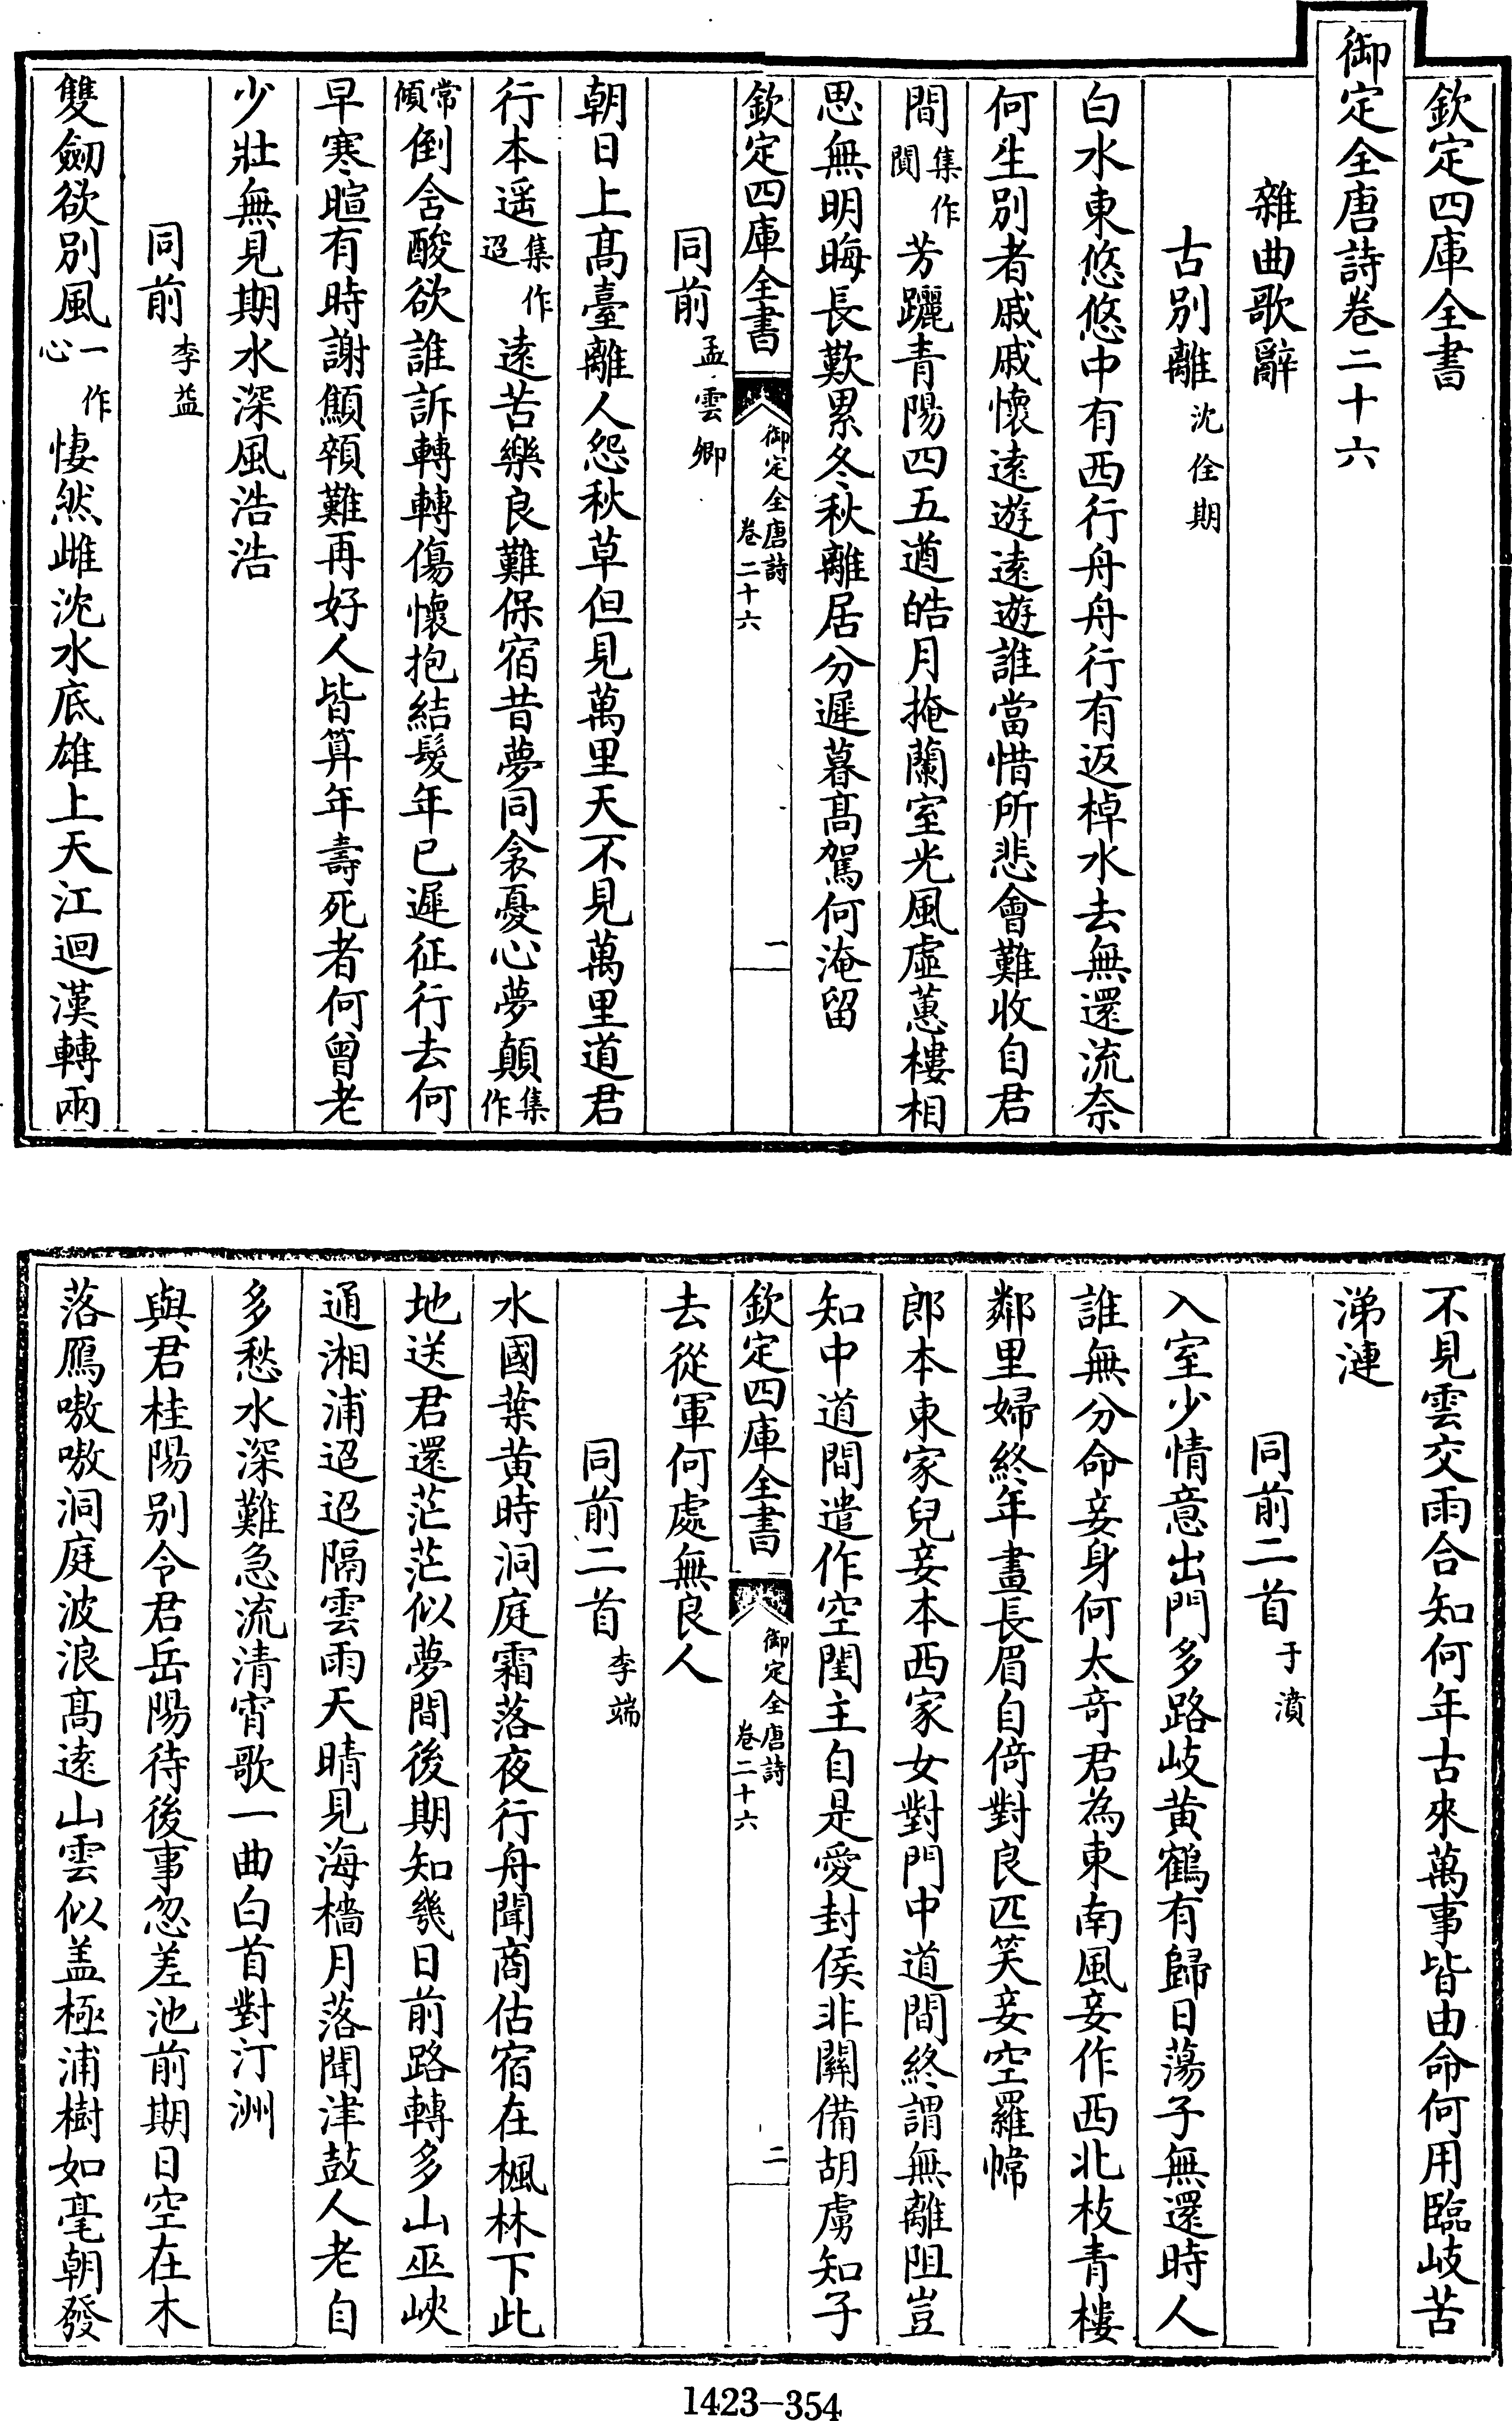 欽定四庫全書
御定全唐詩卷二十六
雜曲歌辭
古別離沈佺期
白水東悠悠中有西行舟舟行有返棹水去無還流奈
何生別者戚戚懷遠遊遠遊誰當惜所悲會難收自君
間集作聞芳躧青陽四五遒皓月掩蘭室光風虛蕙樓相
思無明晦長歎累冬秋離居分遲暮高駕何淹留
欽定四庫全書 御定全唐詩卷二十六 一
同前孟雲卿
朝日上高臺離人怨秋草但見萬里天不見萬里道君
行本遥集作迢遠苦樂良難保宿昔夢同衾憂心夢顛集作
常傾倒含酸欲誰訴轉轉傷懷抱結髮年已遲征行去何
早寒暄有時謝顦顇難再好人皆算年壽死者何曾老
少壯無見期水深風浩浩
同前李益
雙劒欲別風一作心悽然雌沈水底雄上天江迴漢轉兩
不見雲交雨合知何年古來萬事皆由命何用臨岐苦
涕漣
同前二首于濆
入室少情意出門多路岐黄鶴有歸日蕩子無還時人
誰無分命妾身何太奇君為東南風妾作西北枝青樓
鄰里婦終年畫長眉自倚對良匹笑妾空羅幃
郎本東家兒妾本西家女對門中道間終謂無離阻豈
知中道間遣作空閨主自是愛封侯非關備胡虜知子
欽定四庫全書 御定全唐詩卷二十六 二
去從軍何處無良人
同前二首李端
水國葉黄時洞庭霜落夜行舟聞商估宿在楓林下此
地送君還茫茫似夢間後期知幾日前路轉多山巫峽
通湘浦迢迢隔雲雨天晴見海檣月落聞津鼓人老自
多愁水深難急流清宵歌一曲白首對汀洲
與君桂陽別令君岳陽待後事忽差池前期日空在木
落鴈嗷嗷洞庭波浪高遠山雲似盖極浦樹如毫朝發
1423-354